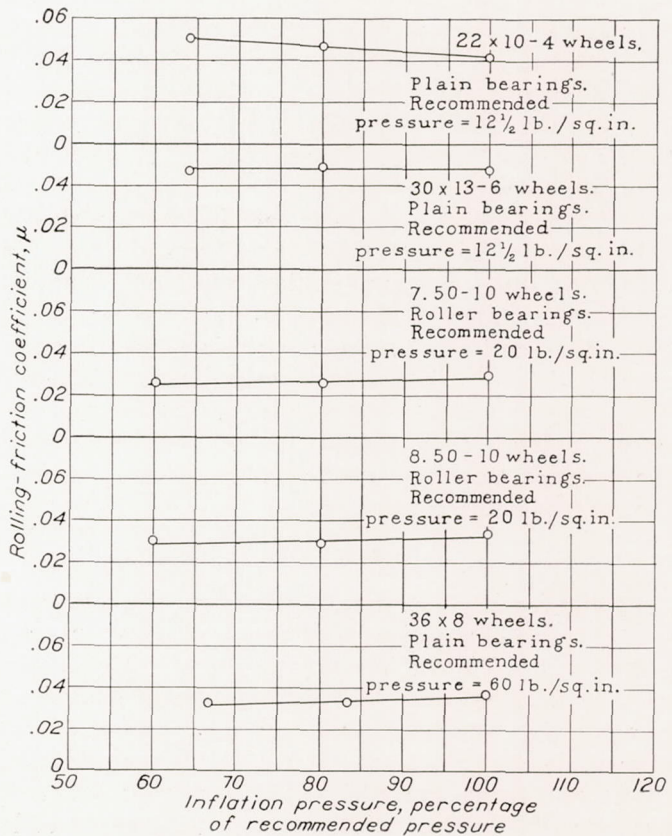 .06
.04
.02
0
.04
.02
0
.06
.04
.02
0
.06
.04
.02
0
.06
.04
.02
0
Rolling-friction coefficient, μ
22 x 10-4 wheels.
Plain bearings.
Recommended
pressure = 12½ lb./sq.in.
30 x 13-6 wheels.
Plain bearings.
Recommended
pressure = 12½ lb./sq.in.
7.50-10 wheels.
Roller bearings.
Recommended
pressure = 20 lb./sq.in.
8.50-10 wheels.
Roller bearings.
Recommended
pressure = 20 lb./sq.in.
36 x 8 wheels.
Plain bearings.
Recommended
pressure = 60 lb./sq.in.
50 60 70 80 90 100 110 120
Inflation pressure, percentage
of recommended pressure